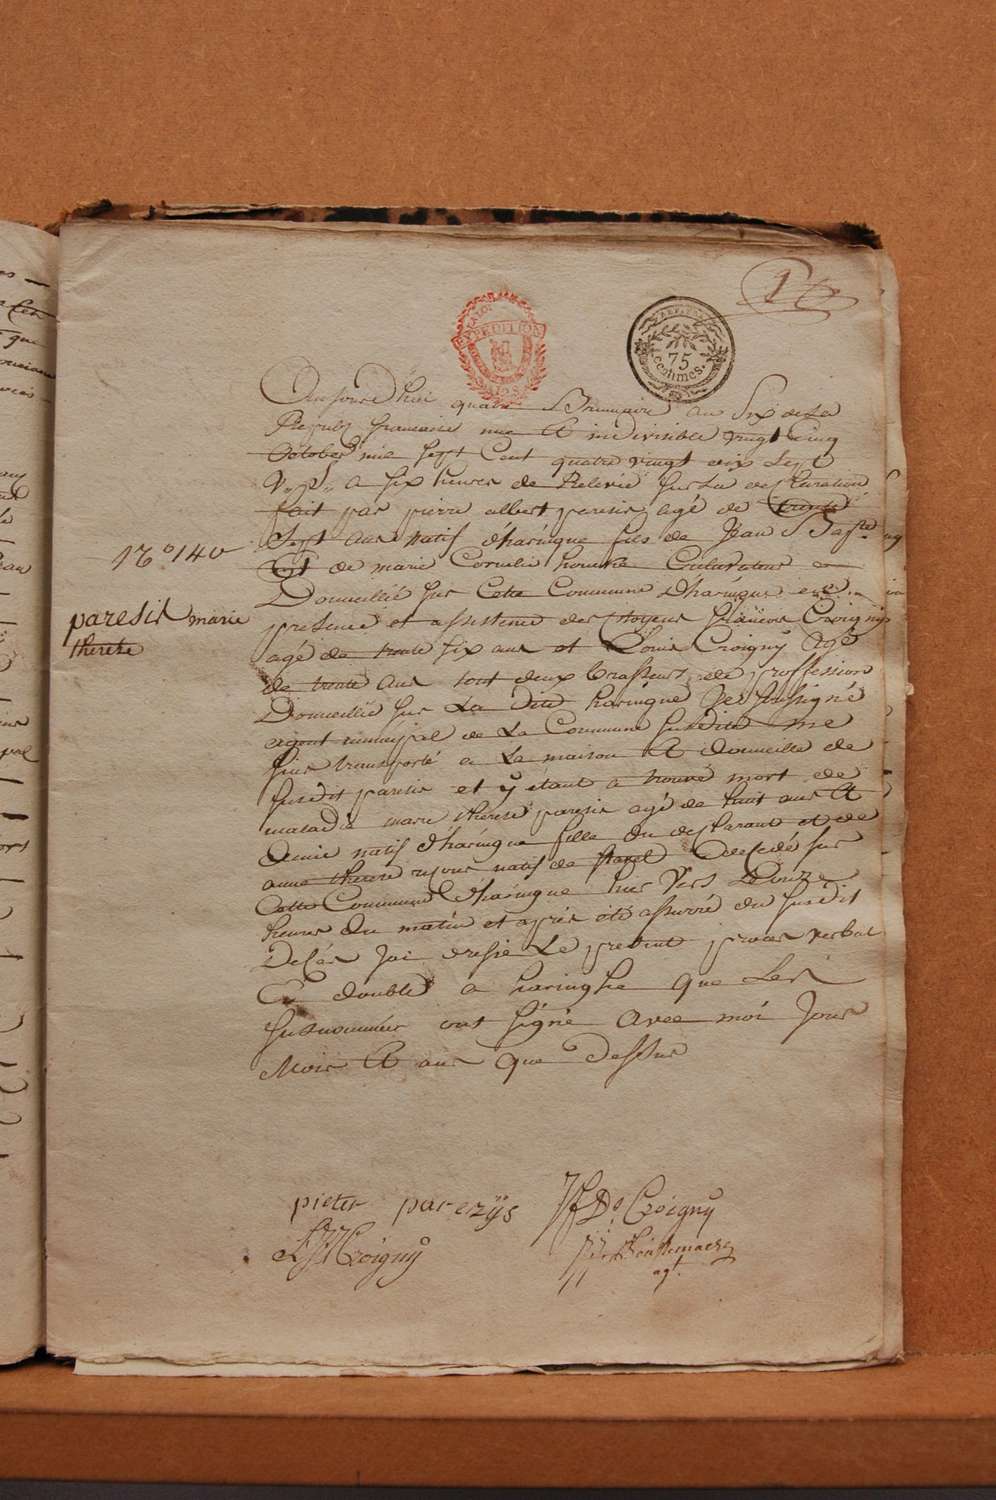 EXPÉDITION
75
centimes.
Aujourd'hui quatre Brumaire an Six de la
Republ francaise une & indivisible vingt Cinq
October mille Sept Cent quatre vingt dix Sept
V. S. a six heures de Relevée sur la declaration
fait par pierre albert paresis agé de trente
Sept ans natif d'haringue fils de Jean Bapte
Et de marie Cornelie Cultivateur
Domeillié sur Cette Commune D'haringue en
presence et assistence des Citoyens françois Croigny
agé de trente six ans et Louis Croigny agé
de trente ans tout deux brasseurs de proffession
Domeillié sur La dite haringue Je Soussigné
agent municipal de La Commune Susdite me
suis transporté a La maison & domeille de
Susdit paresis et y etant a trouvé mort de
maladie marie therese paresis agé de huit ans &
demie natif d'haringue fille du declarant et de
anne therese natif de Decedé sur
Cette Commune d'haringue hier vers Douze
heures du matin et après été assurré du susdit
Decès J'ai dressé Le present procès verbal
En double a haringhe que Les
susnommées ont signé avec moi Jour
Mois & ans que dessus
No 140
paresis marie
therese
pieter parezijs
F D Croigny
L J Croigny
agt.